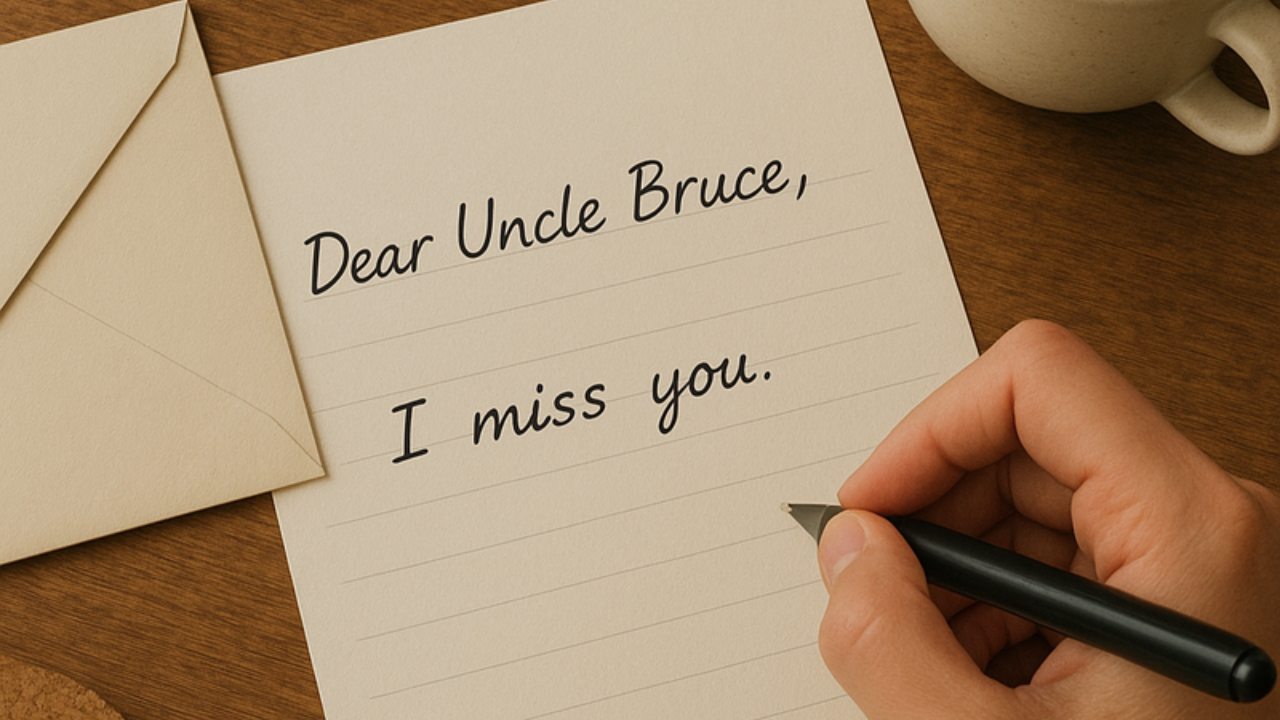 Dear Uncle Bruce,
I miss you.